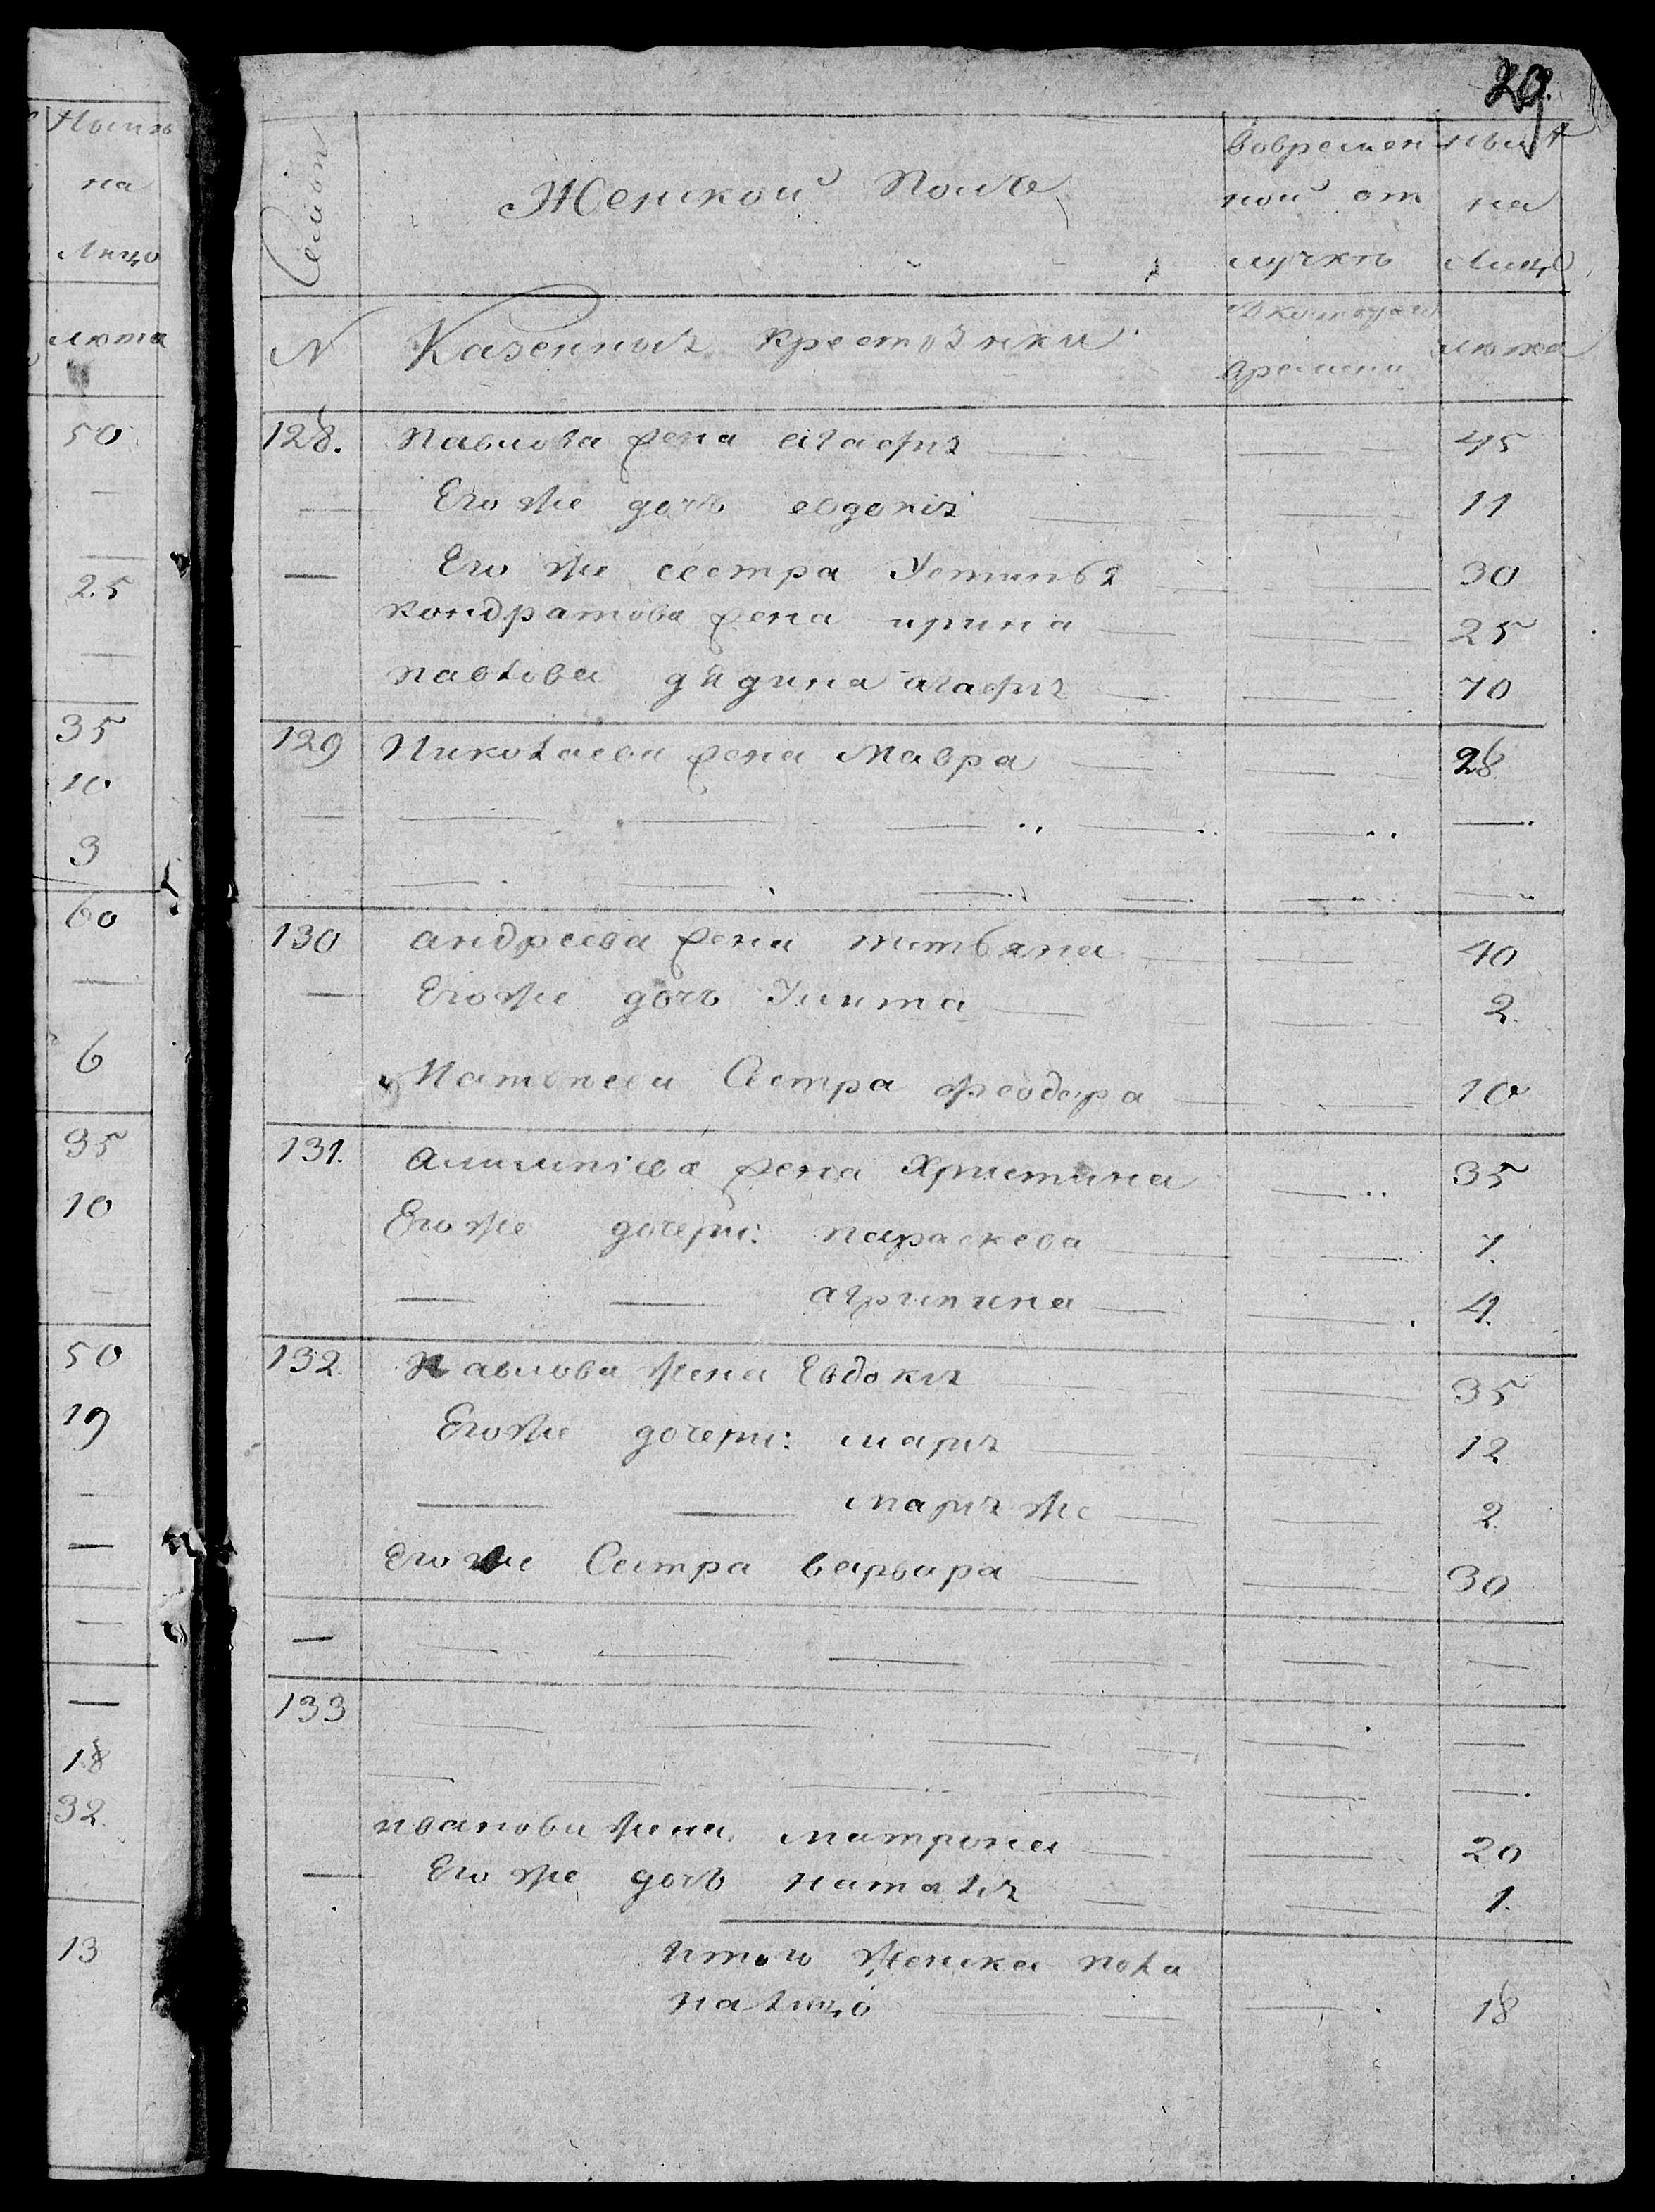 Нынѣ
на
Лицо
лѣта
50
25
35
10
3
60
6
35
10
50
19
18
32
13
29.
Семьи
Женской Полъ
вовремен
ной от
лучкѣ
ныне
на
Лицо
N
Казенныя крестьянки
съ котораго
времени
лѣта
128. павлова жена агафия 45
Его же дочь евдокия 11
Его же сестра Устинья 30
кондратова жена ирина 25
павлова дядина агафия 70
129 Николаева жена Мавра 28
130 андреева жена татьяна 40
Егоже дочь Улита 2
Матвѣева Сестра феодора 10
131. алимпiева жена Христина 35
Егоже дочери: параскева 7.
агрипина 4.
132. Павлова жена Евдокия 35
Егоже дочери: мария 12
мария же 2.
Его же Сестра варвара 30
133
иванова жена матрона 20
Его же дочь наталия 1.
Итого женска пола
налицо 18